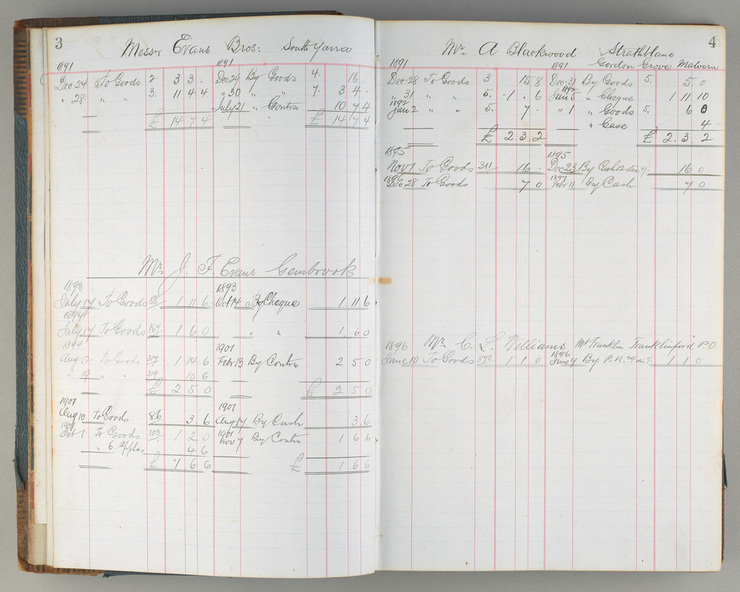 3
Messrs Evans Bros: South Yarra
1891 1891
Dec 24 To Goods 2 3 3 - Dec 29 By Goods 4. 16 -
" 28 " " 3. 11 4 4 " 30 " " 7. 3 4 -
July 21 " Contra 10 7 4
£ 14 7 4 £ 14 7 4
Mr. J. F. Evans Gembrook
1893 1893
July 17 To Goods 1 11 6 Oct 14 By Cheque 1 11 6
July 17 To Goods 167 1 6 0 " " 1 6 0
1899 1901
Aug To Goods 317 1 14 6 Feb 13 By Contra 2 5 0
9 " 319 10 6
£ 2 5 0 £ 2 5 0
1901 1901
Aug 10 To Goods 86 3 6 Aug 14 By Cash 3 6
Oct 1 To Goods 103 1 2 0 Nov 7 By Contra 1 6 6
" 6 Apples 4 6
£ 1 6 6 £ 1 6 6
4
Mr. A Blackwood Strathblane
Gordon Grove Malvern
1891 1891
Dec 28 To Goods 3 15 8 Dec 31 By Goods 5. 5 0
" 31 " " 5. 1 " 6 Jan 5 " Cheque 1 11 10
1892
Jan 2 " " 5. 7 - " 1 " Goods 5. 6 0
" Case 4
£ 2. 3. 2 £ 2. 3. 2
1895 1895
Nov 1 To Goods 311 16 - Dec 23 By 16 0
1896 1897
Dec 28 To Goods 7 0 Feb 11 By Cash 7 0
1896 Mr. C. L. Williams Mt Franklin Franklinford P.O.
1896
June 10 To Goods 1 1 0 June 4 By P.N. 1 1 0